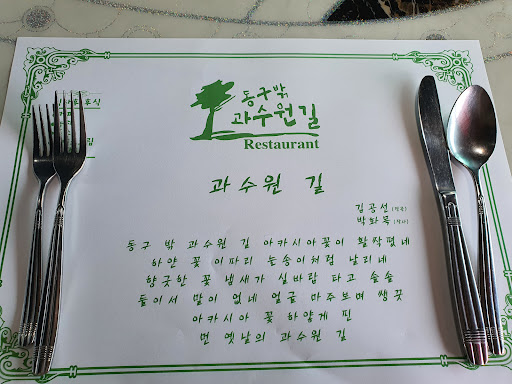 동구밖
과수원길
Restaurant
후식
과수원 길
김공선(작곡)
박화목(작사)
동구 밖 과수원 길 아카시아꽃이 활짝폈네
하얀 꽃 이파리 눈송이처럼 날리네
향긋한 꽃 냄새가 실바람 타고 솔솔
둘이서 말이 없네 얼굴 마주보며 쌩끗
아카시아 꽃 하얗게 핀
먼 옛날의 과수원 길